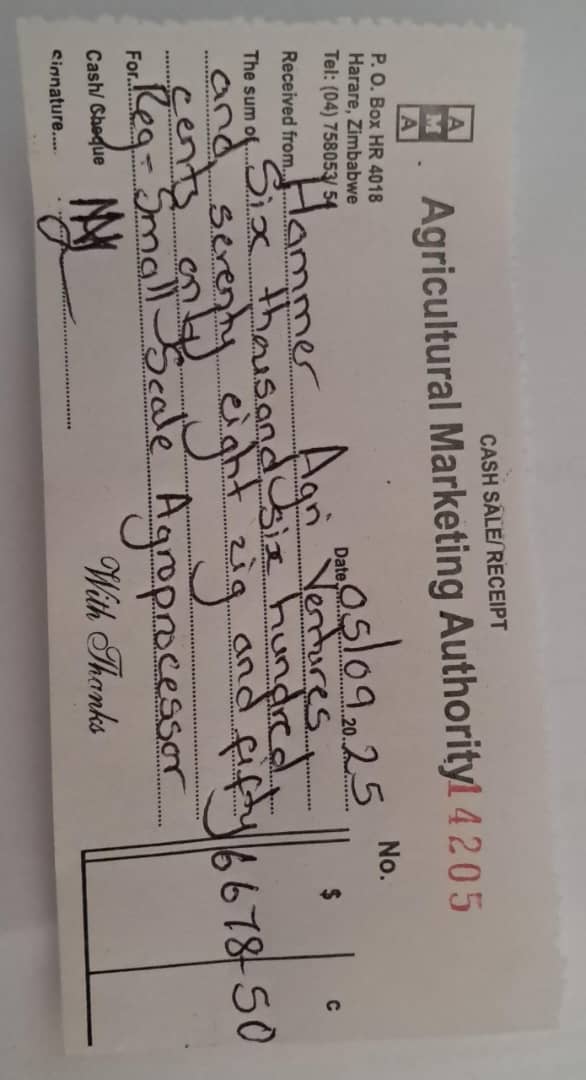 CASH SALE/RECEIPT
A M A
Agricultural Marketing Authority 14205
P. O. Box HR 4018
Harare, Zimbabwe
Tel: (04) 758053/54
No.
Date 05/09 20 25
Received from Hammer Agri Ventures
$ c
The sum of Six thousand six hundred
and seventy eight zig and fifty
cents only
6678-50
For Reg - Small Scale Agroprocessor
Cash/Cheque
With Thanks
Signature